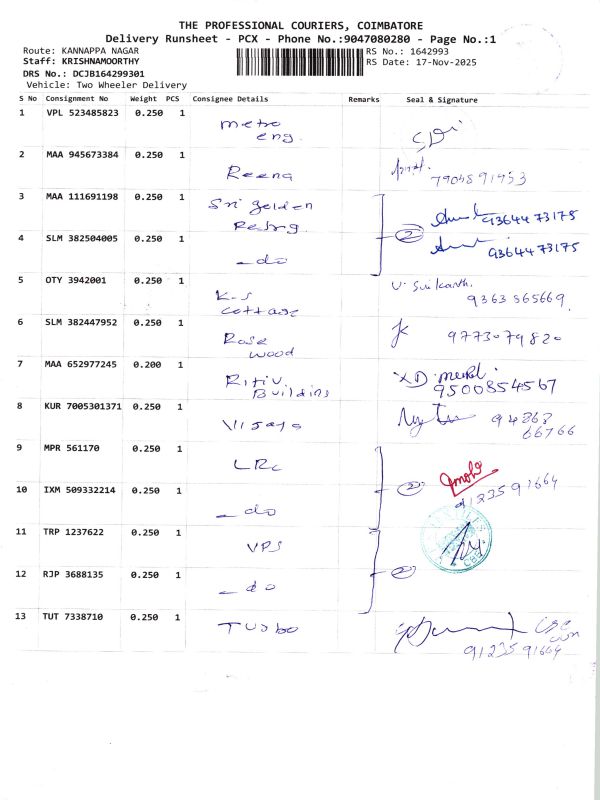 THE PROFESSIONAL COURIERS, COIMBATORE
Delivery Runsheet - PCX - Phone No.:9047080280 - Page No.:1
Route: KANNAPPA NAGAR
RS No.: 1642993
Staff: KRISHNAMOORTHY
RS Date: 17-Nov-2025
DRS No.: DCJB164299301
Vehicle: Two Wheeler Delivery
S No Consignment No Weight PCS Consignee Details Remarks Seal & Signature
1 VPL 523485823 0.250 1 metro
eng.
2 MAA 945673384 0.250 1 Reena
7904891453
3 MAA 111691198 0.250 1 Sri golden
Retrg. 2 9364473175
4 SLM 382504005 0.250 1 - do 9364473175
5 OTY 3942001 0.250 1 K-S
cottage
V. Srikanth.
9363565669
6 SLM 382447952 0.250 1 Rose
wood
9773079820
7 MAA 652977245 0.200 1 Ritiv
Buildings
9500854567
8 KUR 7005301371 0.250 1 Vijaya
94863
66766
9 MPR 561170 0.250 1 LRC
10 IXM 509332214 0.250 1 - do 2 9123591664
11 TRP 1237622 0.250 1 VPS
12 RJP 3688135 0.250 1 - do 2
13 TUT 7338710 0.250 1 Turbo
9123591664